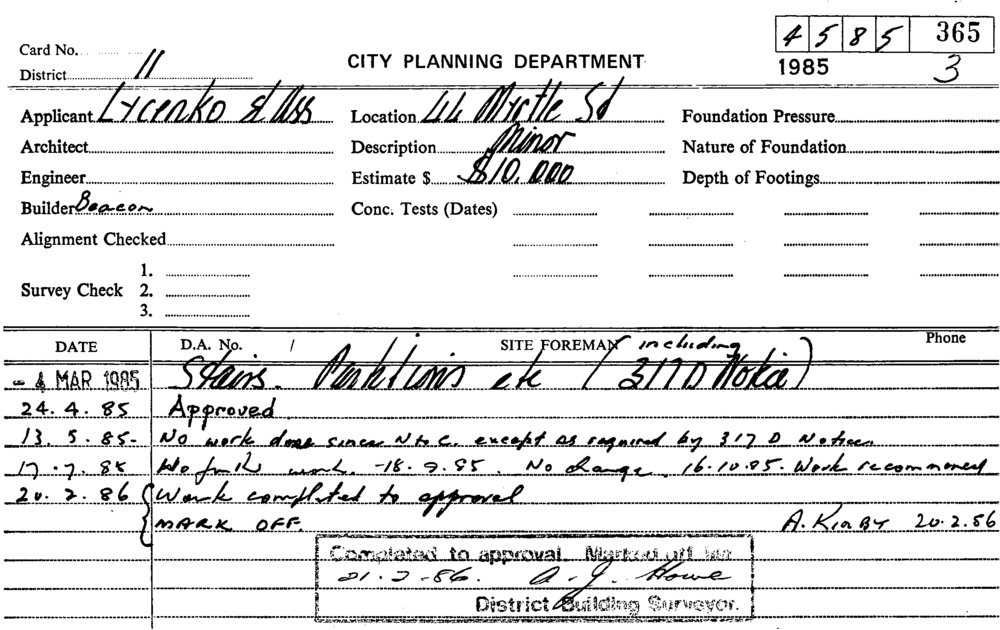 4 5 8 5 365
Card No.
CITY PLANNING DEPARTMENT
1985 3
District 11
Applicant Lycenko & Ass Location 44 Myrtle St Foundation Pressure
Architect Description Minor Nature of Foundation
Engineer Estimate $ $10,000 Depth of Footings
Builder Beacon Conc. Tests (Dates)
Alignment Checked
1.
Survey Check 2.
3.
DATE D.A. No. / SITE FOREMAN Phone
- 4 MAR 1985 Stairs. Partitions etc (including 317D Notice)
24.4.85 Approved
13.5.85- No work done since N to C. except as required by 317 D Notice
17.7.85 No work. -18.9.85. No change. 16.10.85. Work recommenced
20.2.86 Work completed to approval
MARK OFF. A. KIRBY 20.2.86
Completed to approval. Marked off
21-2-86. A. J. Howe
District Building Surveyor.